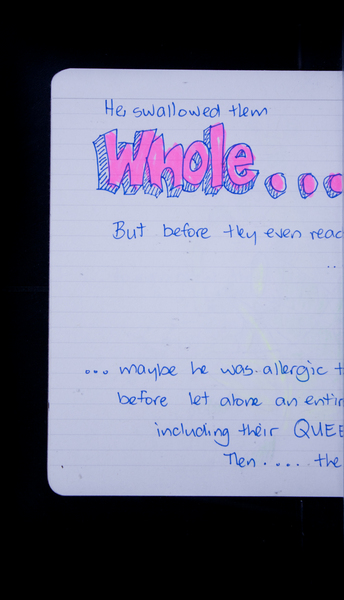 He swallowed them
Whole...
But before they even reac
..
... maybe he was allergic t
before let alone an entir
including their QUEE
Then ..... the